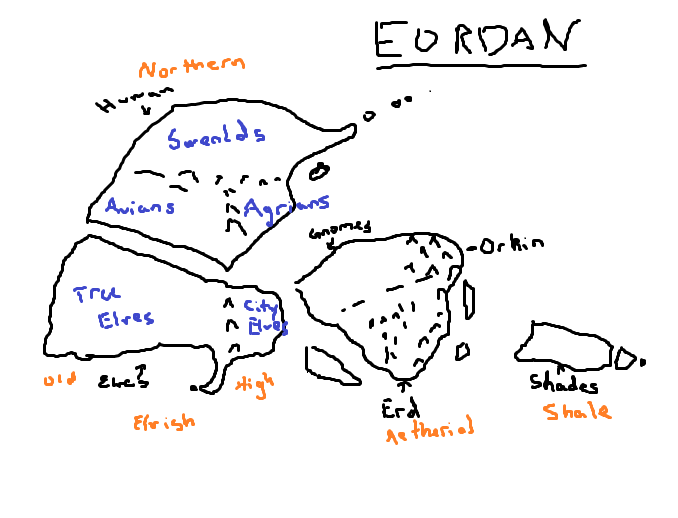 EORDAN
Northern
Human
Swenlds
Avians
Agrians
Gnomes
Orkin
True
Elves
City
Elves
Old
Elves
High
Elvish
Erd
Aetherial
Shades
Shale